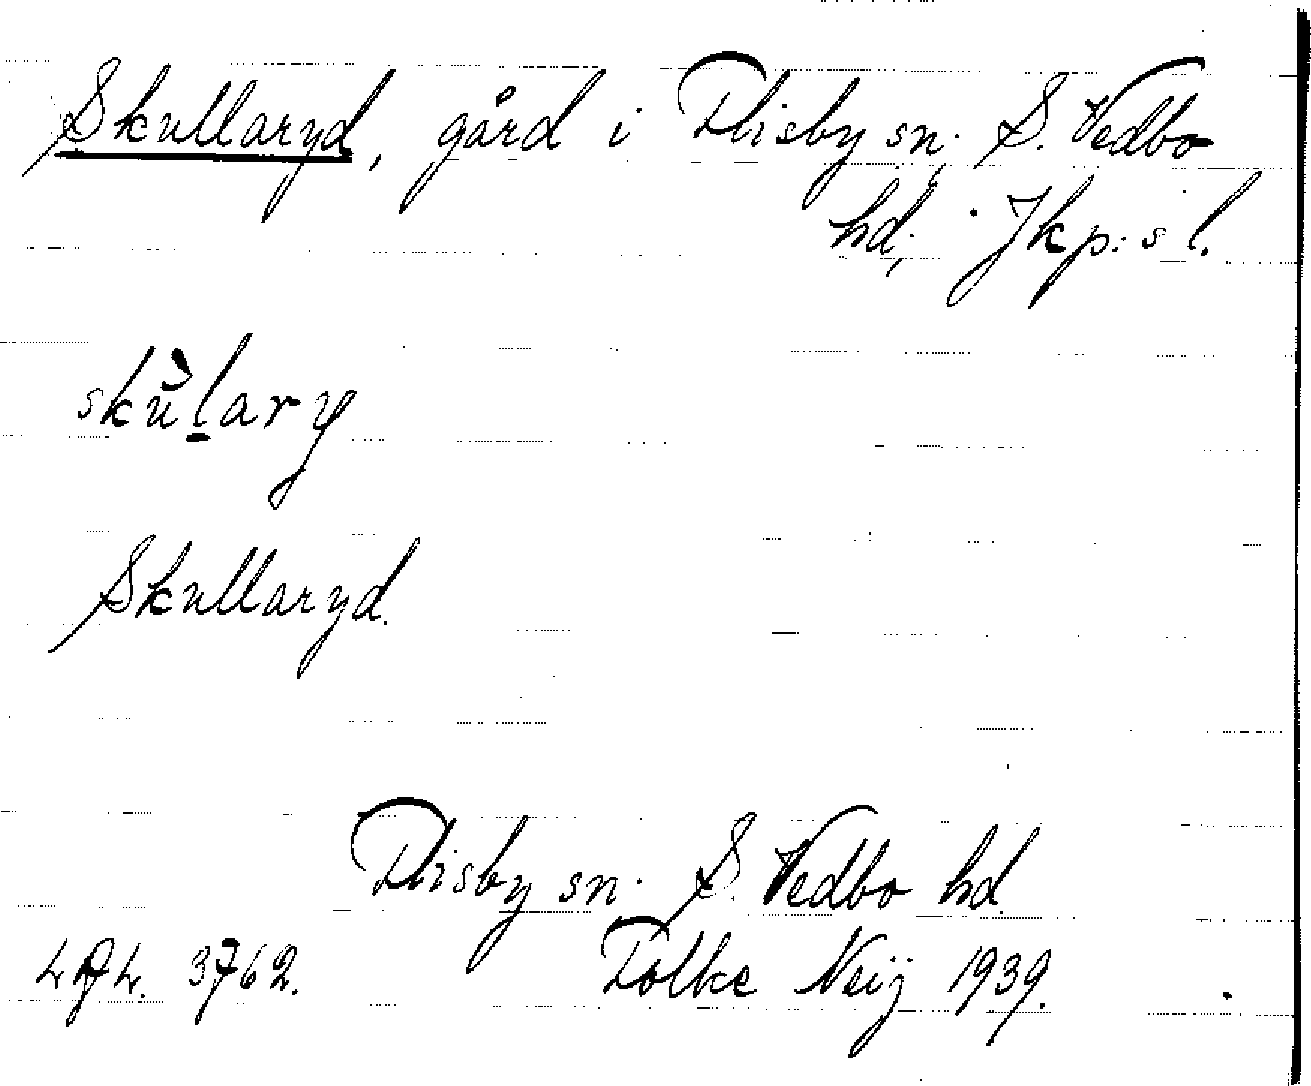 Skullaryd, gård i Flisby sn, S. Vedbo
hd, Jkp:s l.
skùlary
Skullaryd.
Flisby sn. S. Vedbo hd.
3762. Folke Neij 1939.